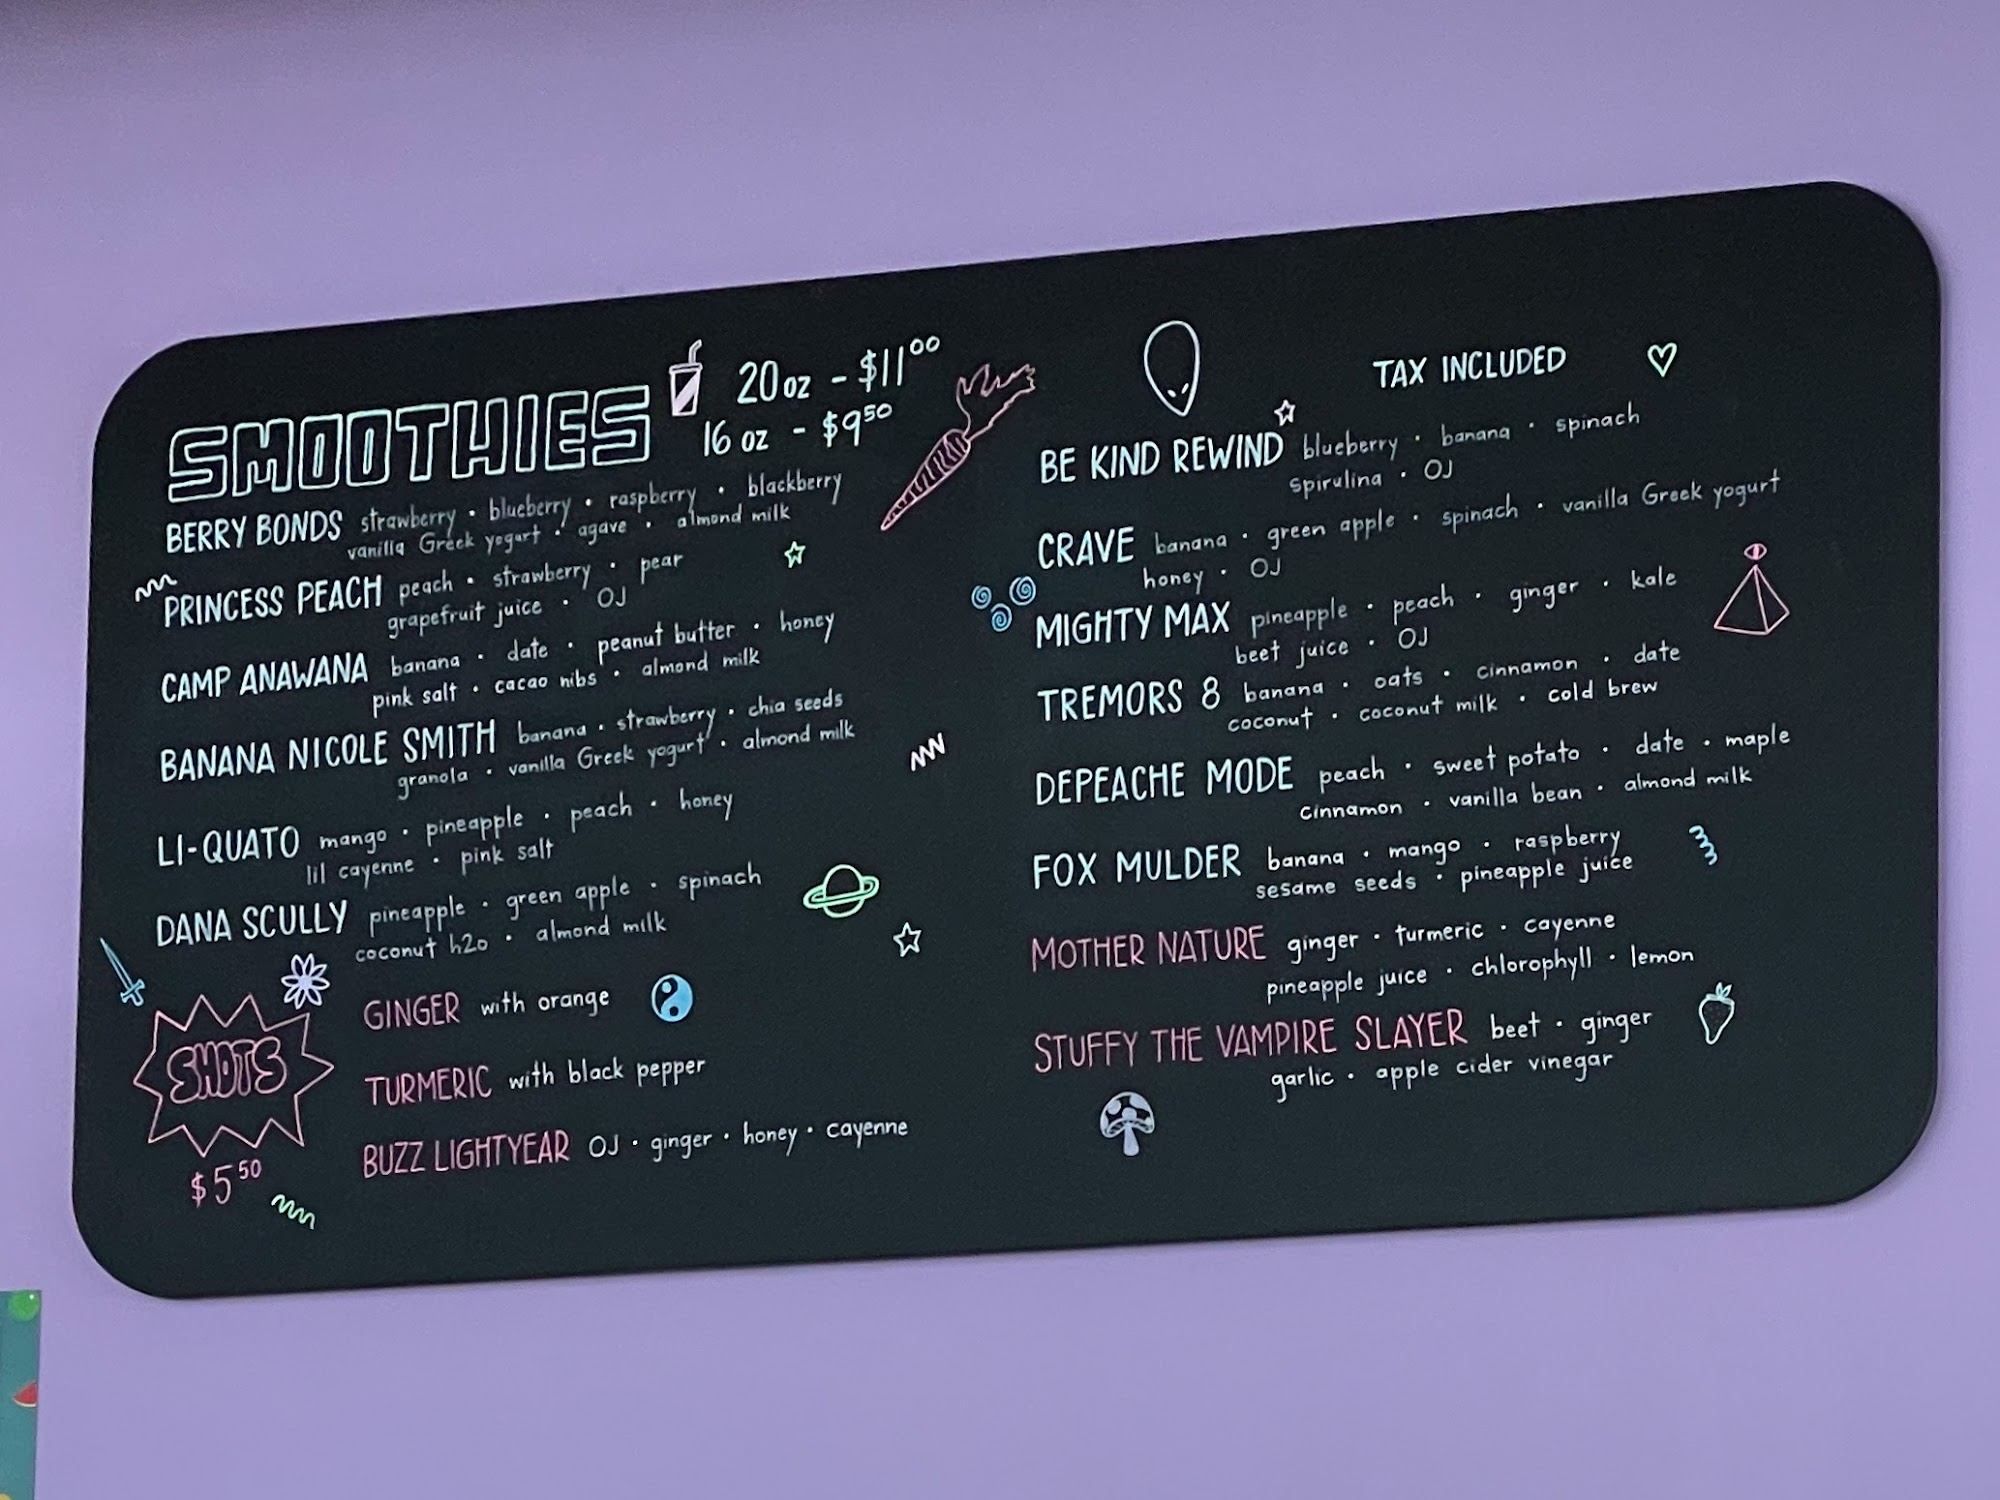 SMOOTHIES
20 oz - $11.00
16 oz - $9.50
BERRY BONDS strawberry · blueberry · raspberry · blackberry
vanilla Greek yogurt · agave · almond milk
PRINCESS PEACH peach · strawberry · pear
grapefruit juice · OJ
CAMP ANAWANA banana · date · peanut butter · honey
pink salt · cacao nibs · almond milk
BANANA NICOLE SMITH banana · strawberry · chia seeds
granola · vanilla Greek yogurt · almond milk
LI-QUATO mango · pineapple · peach · honey
lil cayenne · pink salt
DANA SCULLY pineapple · green apple · spinach
coconut h2o · almond milk
SHOTS
$5.50
GINGER with orange
TURMERIC with black pepper
BUZZ LIGHTYEAR OJ · ginger · honey · cayenne
TAX INCLUDED
BE KIND REWIND blueberry · banana · spinach
spirulina · OJ
CRAVE banana · green apple · spinach · vanilla Greek yogurt
honey · OJ
MIGHTY MAX pineapple · peach · ginger · kale
beet juice · OJ
TREMORS 8 banana · oats · cinnamon · date
coconut · coconut milk · cold brew
DEPEACHE MODE peach · sweet potato · date · maple
cinnamon · vanilla bean · almond milk
FOX MULDER banana · mango · raspberry
sesame seeds · pineapple juice
MOTHER NATURE ginger · turmeric · cayenne
pineapple juice · chlorophyll · lemon
STUFFY THE VAMPIRE SLAYER beet · ginger
garlic · apple cider vinegar